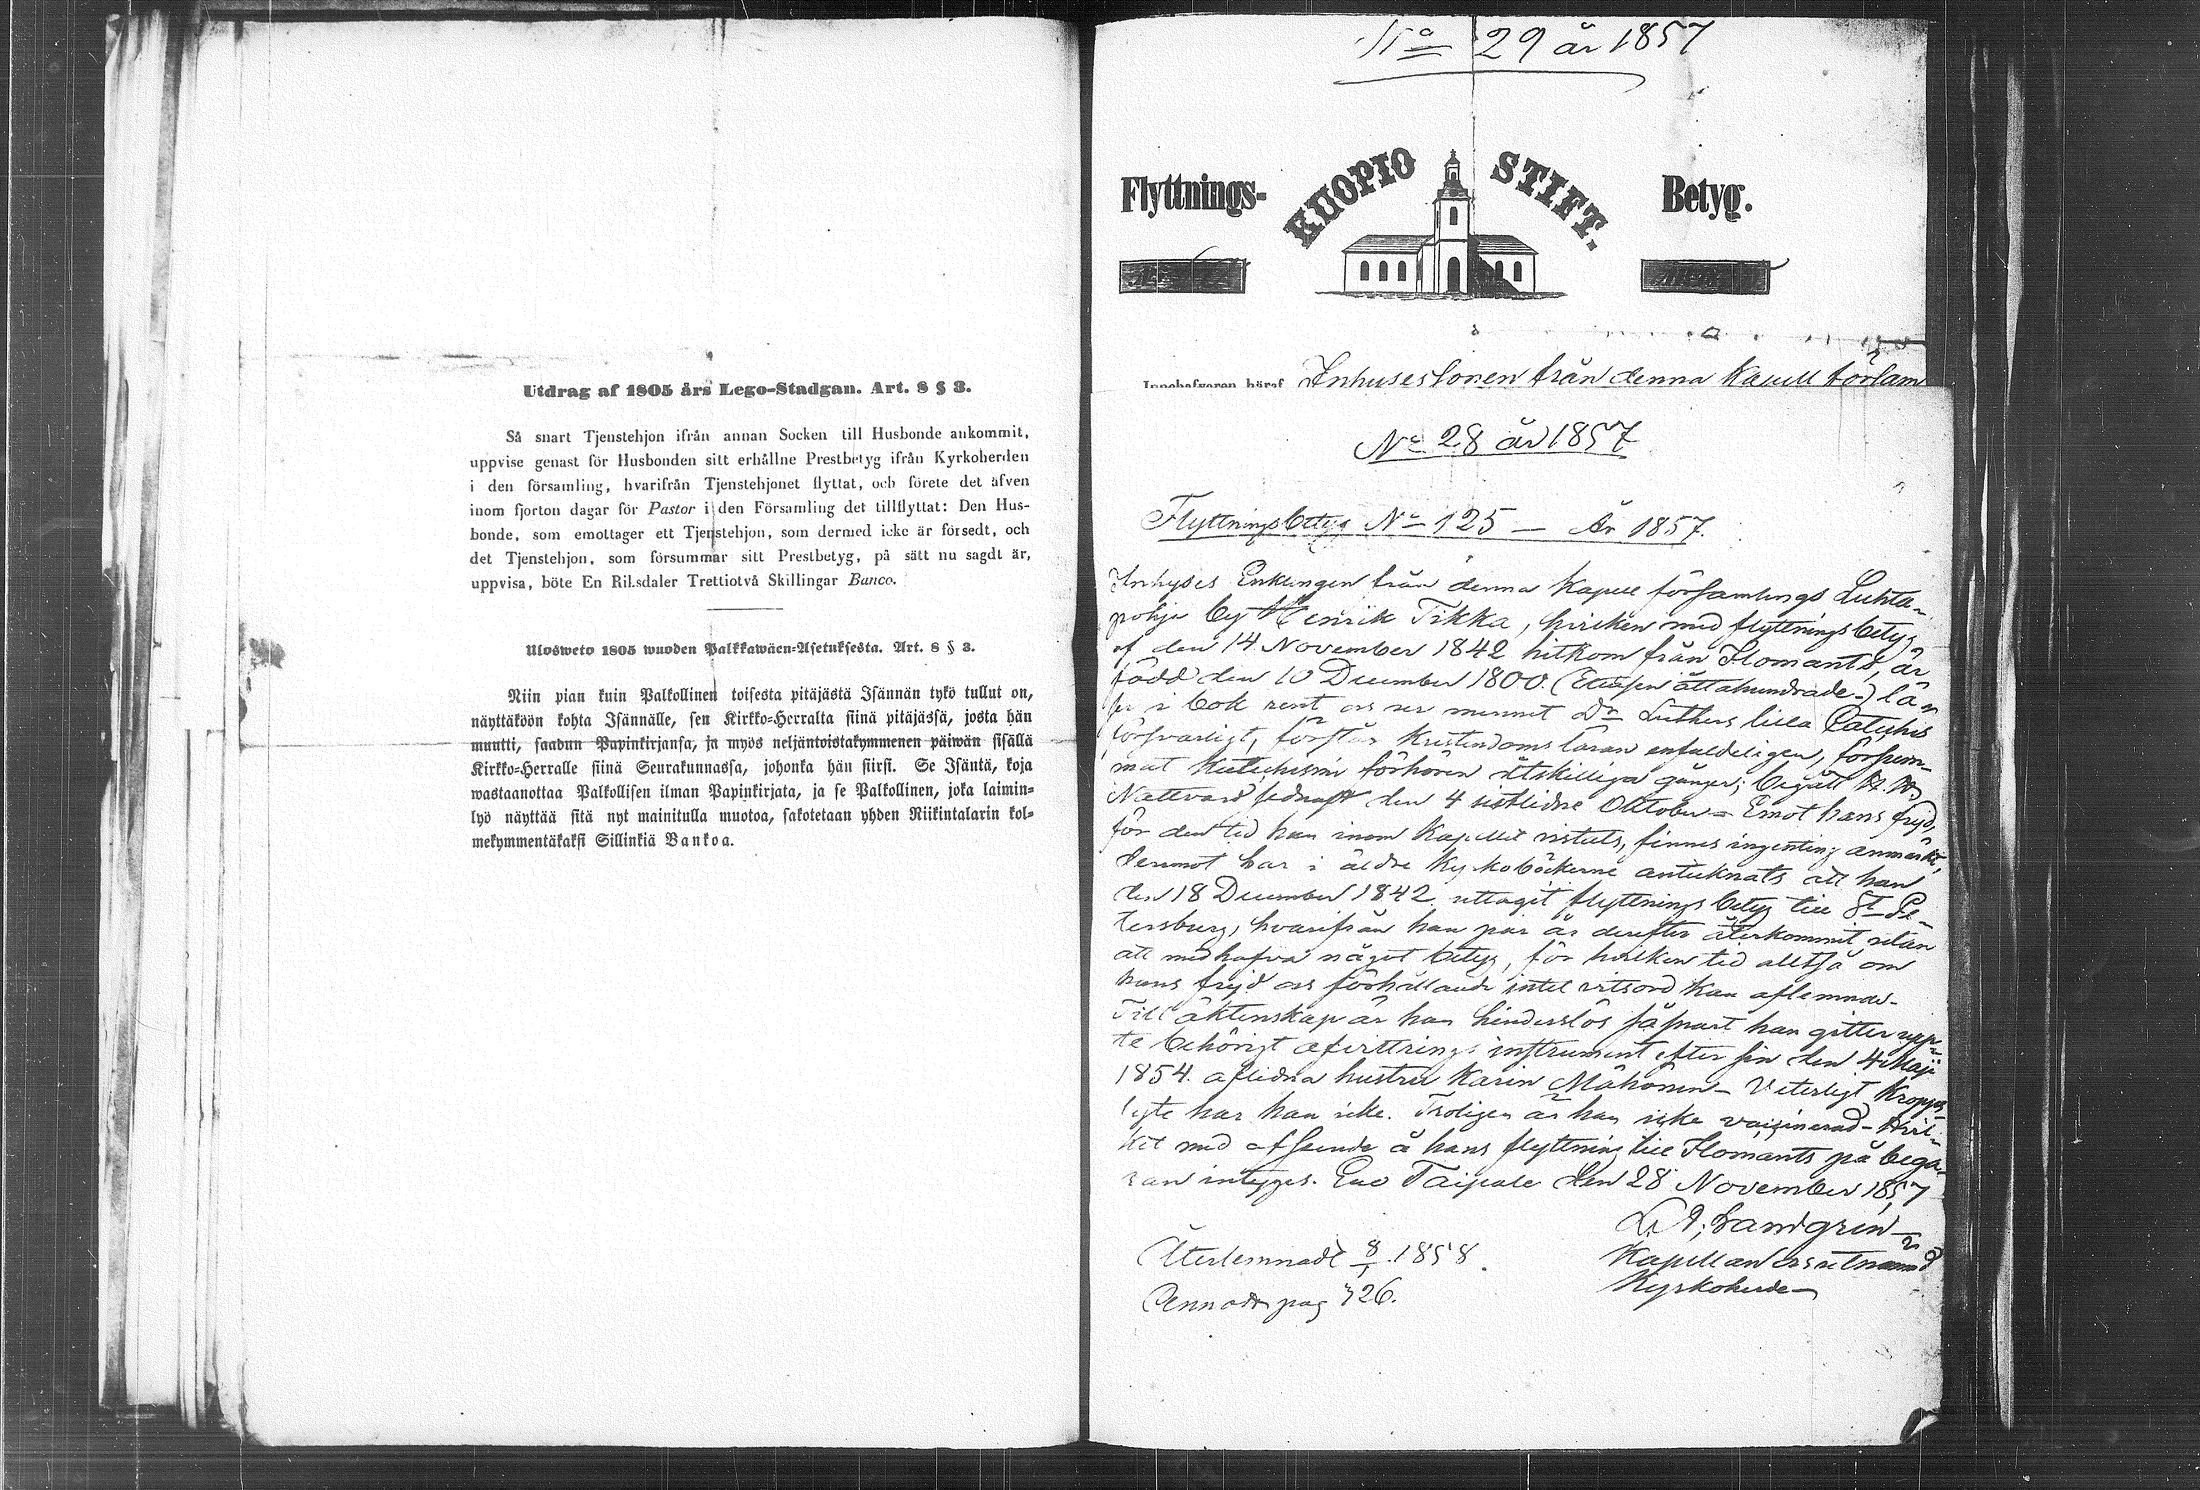 Utdrag af 1805 års Lego-Stadgan. Art. 8 § 3.
Så snart Tjenstehjon ifrån annan Socken till Husbonde ankommit,
uppvise genast för Husbonden sitt erhållne Prestbetyg ifrån Kyrkoherden
i den församling, hvarifrån Tjenstehjonet flyttat, och förete det äfven
inom fjorton dagar för Pastor i den Församling det tillflyttat: Den Hus-
bonde, som emottager ett Tjenstehjon, som dermed icke är försedt, och
det Tjenstehjon, som försummar sitt Prestbetyg, på sätt nu sagdt är,
uppvisa, böte En Riksdaler Trettiotvå Skillingar Banco.
Ulosweto 1805 wuoden Palkkawäen-Asetuksesta. Art. 8 § 3.
Niin pian kuin Palkollinen toisesta pitäjästä Isännän tykö tullut on,
näyttäköön kohta Isännälle, sen Kirkko-Herralta siinä pitäjässä, josta hän
muutti, saadun Papinkirjansa, ja myös neljäntoistakymmenen päiwän sisällä
Kirkko-Herralle siinä Seurakunnassa, johonka hän siirsi. Se Isäntä, koja
wastaanottaa Palkollisen ilman Papinkirjata, ja se Palkollinen, joka laimin-
lyö näyttää sitä nyt mainitulla muotoa, sakotetaan yhden Riikintalarin kol-
mekymmentäkaksi Sillinkiä Bankoa.
No 29 år 1857
Flyttnings- KUOPIO STIFT. Betyg.
Innehafvaren häraf Inhuses Sonen från denna Kapell församl
No 28 år 1857
Flyttningsbetyg No 125 — År 1857.
Inhyses Enklingen från denna Kapell församlings Luhta-
pohja by Henrik Tikka, hvilken med flyttningsbetyg
af den 14 November 1842 hitkom från Ilomants, är
född den 10 December 1800. (Ettusen åttahundrade-) lä-
ser i bok rent och ur minnet Dr Luthers lilla Cateches
försvarligt, förstår Kristendoms läran enfaldeligen, försum-
mat Katechismi förhören åtskilliga gånger; begått H. H.
Nattvard sednast den 4 sistlidne Oktober - Emot hans frejd,
för den tid han inom Kapellet vistats, finnes ingenting anmärkt,
deremot har i äldre Kyrkoböckerne antecknats att han
den 18 December 1842 uttagit flyttningsbetyg till St Pe-
tersburg, hvarifrån han par år derefter återkommit utan
att medhafva något betyg, för hvilken tid alltså om
hans frejd och förhållande intet vitsord kan aflemnas-
Till äktenskap är han hinderslös såsnart han gitter uppte
te behörigt afvittrings instrument efter sin den 4 Maji
1854. aflidna hustru Karin Mähönen - Veterligt Kropps-
lyte har han icke. Troligen är han icke vaccinerad - Hvil-
ket med afseende å hans flyttning till Ilomants på begä-
ran intygas. Eno Taipale den 28 November 1857
Kapellan och utnämnd
Kyrkoherde
Återlemnadt 8/1 1858.
pag 726.